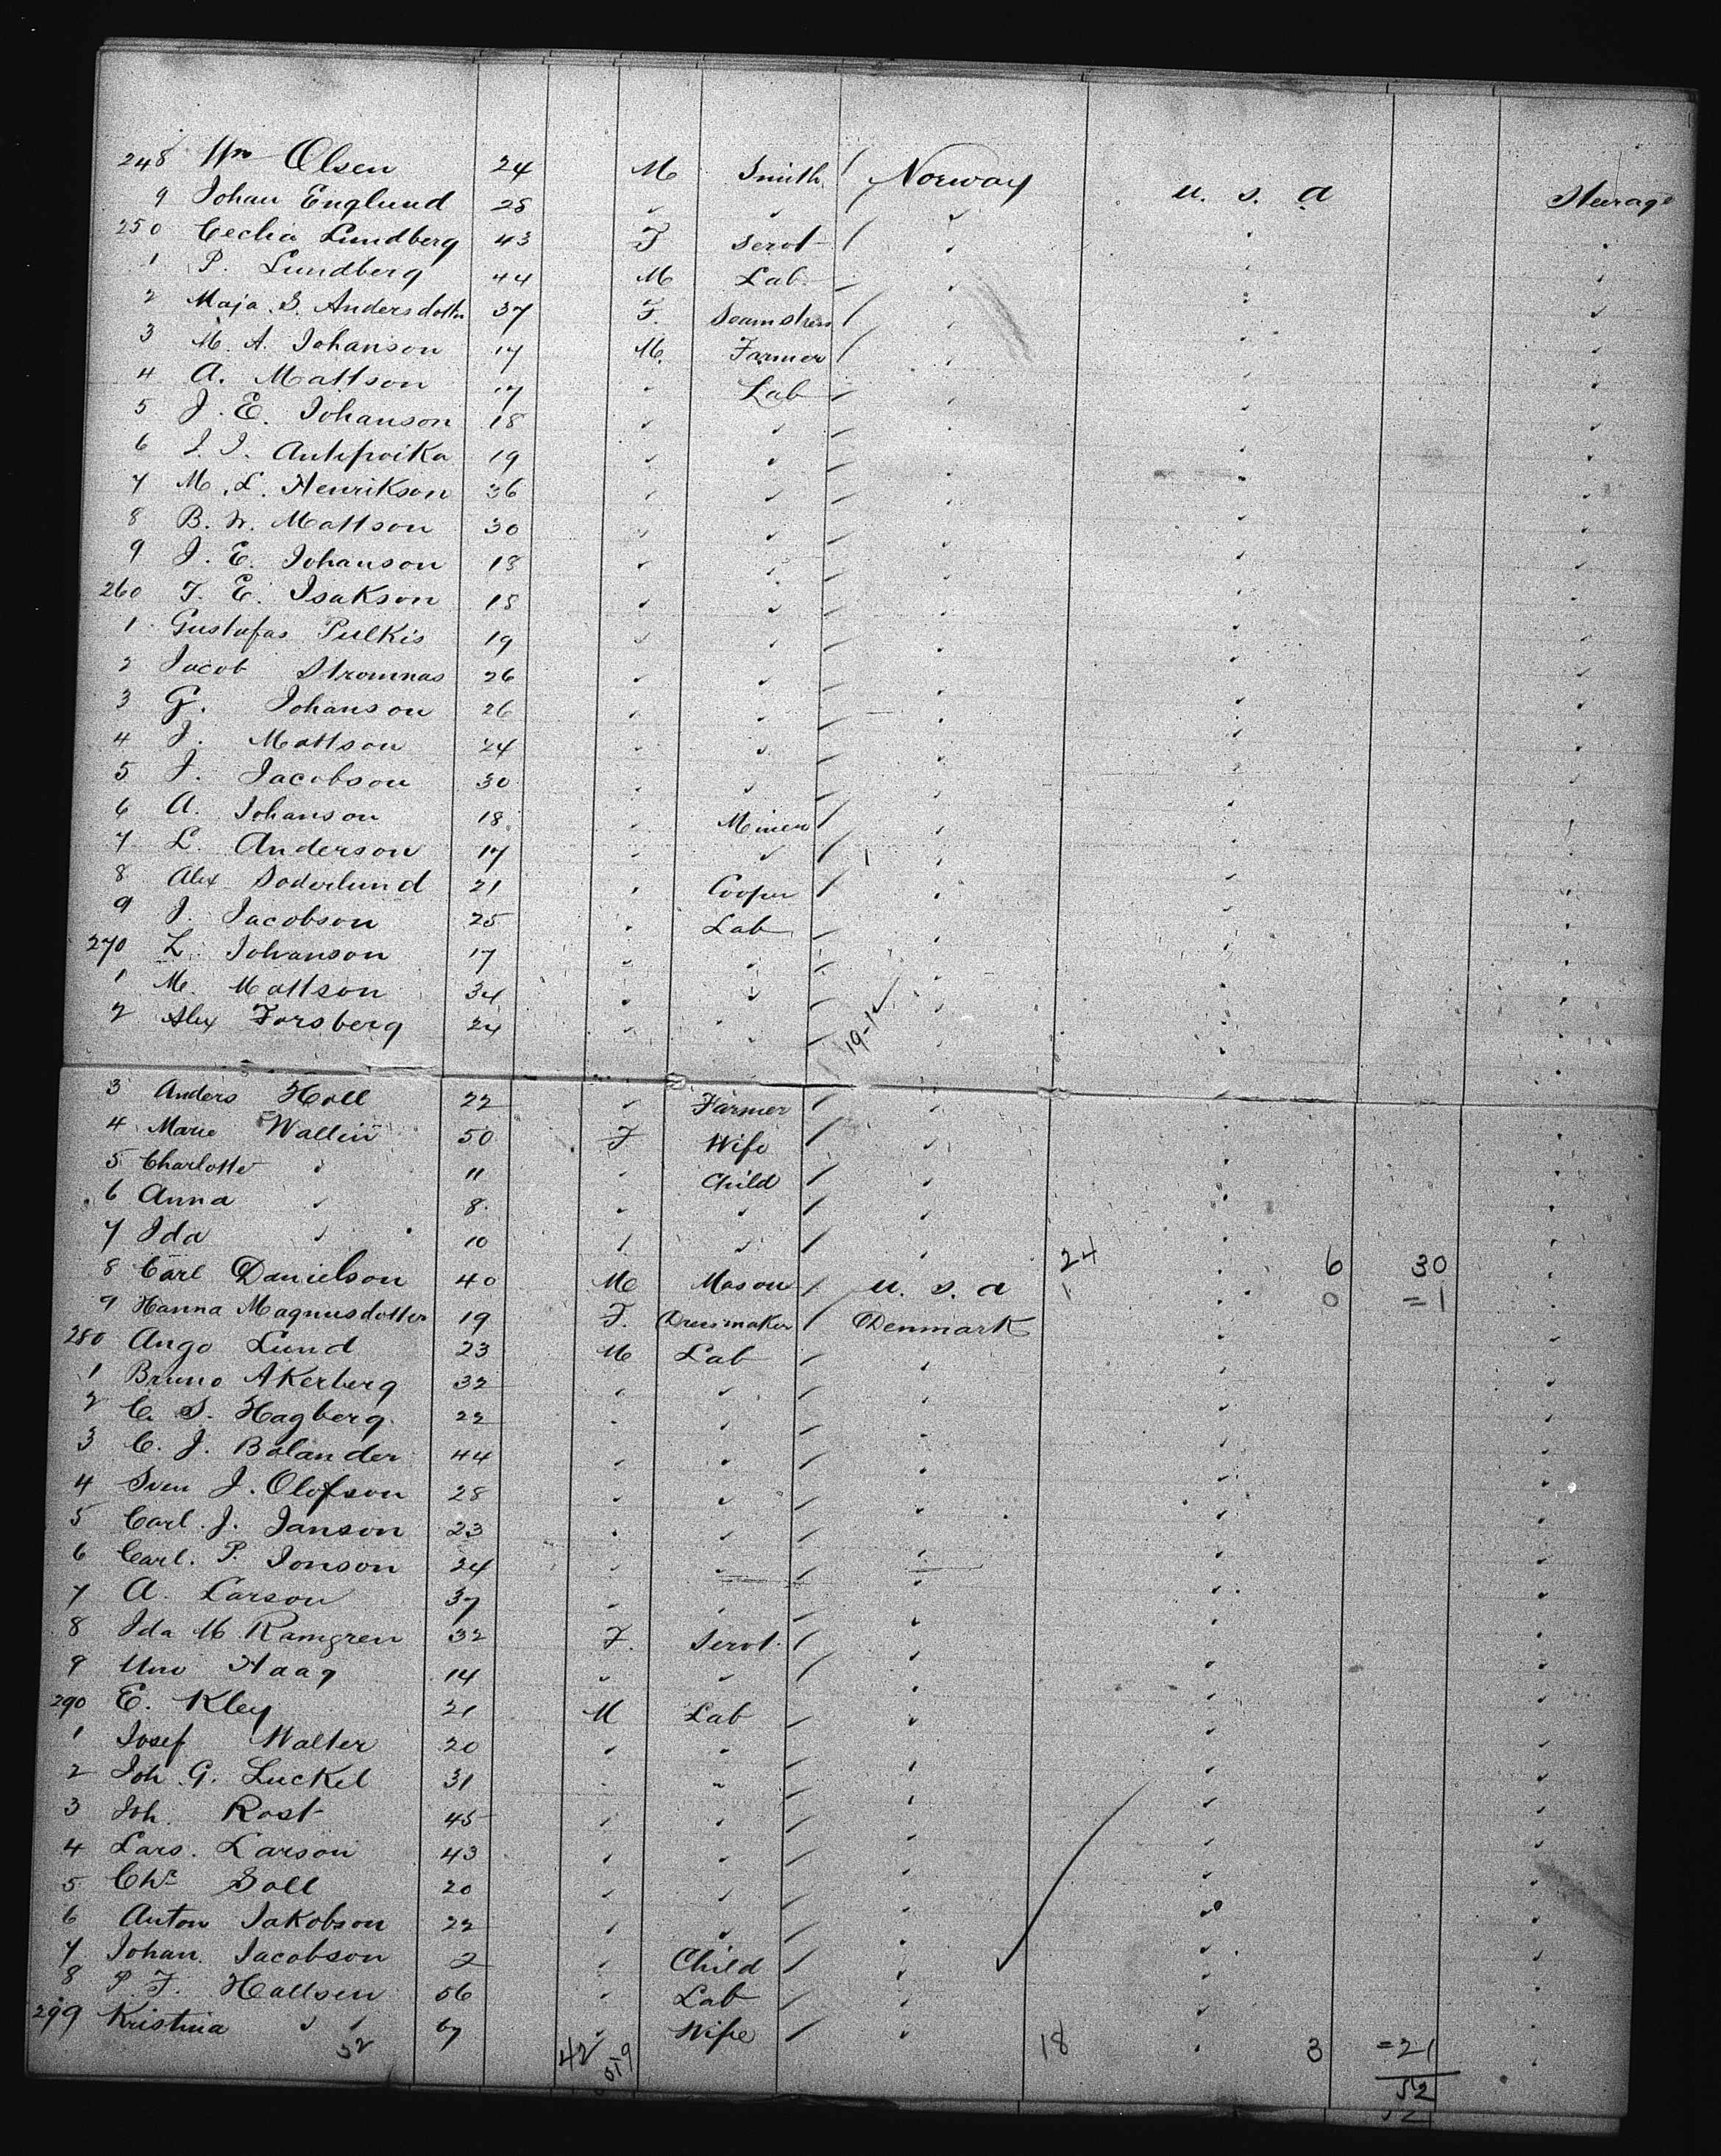 248 Wm Olsen 24 M Smith / Norway U. S. A Steerage
9 Johan Englund 28 " " " " "
250 Cecilia Lundberg 43 F Servt / " " "
1 P. Lundberg 44 M Lab. / " " "
2 Maja S. Andersdotter 37 F. Seamstress / " " "
3 M. A. Johanson 17 M. Farmer / " " "
4 A. Mattson 17 " Lab / " " "
5 J. E. Johanson 18 " " / " " "
6 J. J. Antipoika 19 " " / " " "
7 M. L. Henrikson 36 " " / " " "
8 B. W. Mattson 30 " " / " " "
9 J. E. Johanson 18 " " / " " "
260 J. E. Isakson 18 " " / " " "
1 Gustafas Pulkis 19 " " / " " "
2 Jacob Stromnas 26 " " / " " "
3 G. Johanson 26 " " / " " "
4 J. Mattson 24 " " / " " "
5 J. Jacobson 30 " " / " " "
6 A. Johanson 18 " Miner / " " "
7 L. Anderson 17 " " / " " "
8 Alex Soderlund 21 " Cooper / " " "
9 J. Jacobson 25 " Lab / " " "
270 L. Johanson 17 " " / " " "
1 M. Mattson 34 " " / " " "
2 Alex Forsberg 24 " " / 19-1✓ " " "
3 Anders Holl 22 " Farmer / " " "
4 Marie Wallin 50 F Wife / " " "
5 Charlotte " 11 " Child / " " "
6 Anna " 8 " " / " " "
7 Ida " 10 " " / " 24 " 6 30 "
8 Carl Danielson 40 M Mason / U. S. A 1 " 0 =1 "
9 Hanna Magnusdotter 19 F. Dressmaker / Denmark " "
280 Ango Lund 23 M Lab / " " "
1 Bruno Akerberg 32 " " / " " "
2 C. S. Hagberg 22 " " / " " "
3 C. J. Bolander 44 " " / " " "
4 Sven J. Olofson 28 " " / " " "
5 Carl. J. Janson 23 " " / " " "
6 Carl. P. Jonson 24 " " / " " "
7 A. Larson 37 " " / " " "
8 Ida M Ramgren 32 F. Servt. / " " "
9 Haag 14 " " / " " "
290 E. Kley 21 M Lab / " " "
1 Josef Walter 20 " " / " " "
2 Joh G. Luckel 31 " " / " " "
3 Joh. Rost 45 " " / " " "
4 Lars. Larson 43 " " / " " "
5 Chr Soll 20 " " / " " "
6 Anton Jakobson 22 " " / " " "
7 Johan. Jacobson 2 " Child / " " "
8 P. F. Hallsen 56 " Lab / " " "
299 Kristina " " 67 " Wife / " 18 " 3 =21 "
52 42 9 52